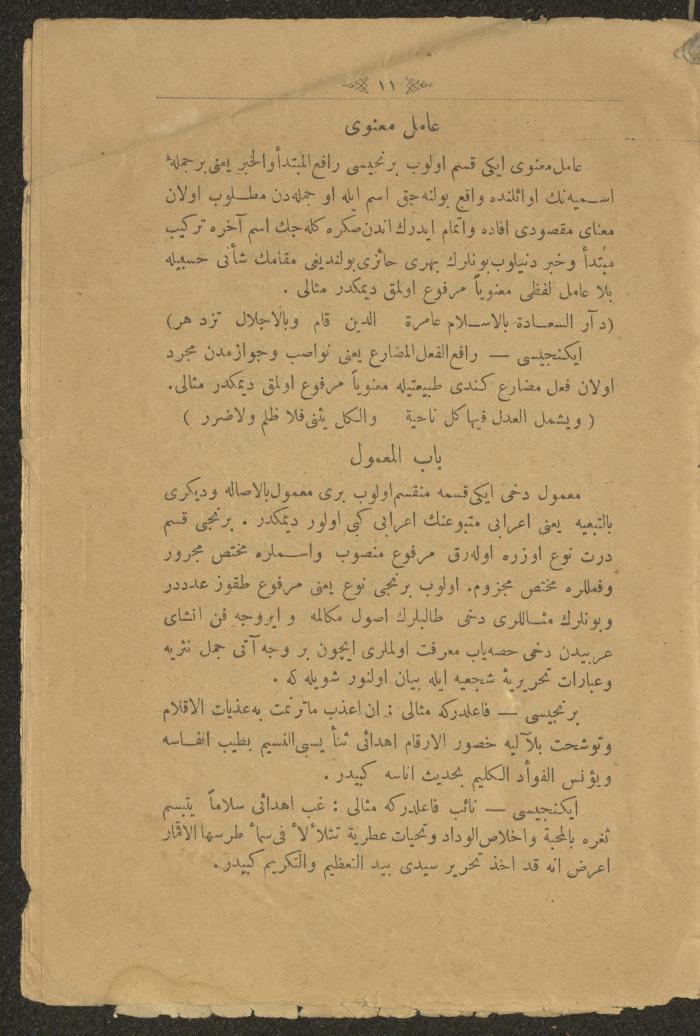 ١١
عامل معنوی
عامل معنوی ایکی قسم اولوب برنجیسی رافع المبتدأ والخبر یعنی بر جملهٔ
اسـمیه‌نك اوائلنده واقع بولنه‌جق اسم ایله او جمله‌دن مطـلوب اولان
معنای مقصودی افاده واتمام ایدرك اندن صكره كله‌جك اسم آخره تركیب
مبتدأ وخبر دنیلوب بونلرك بهری حائزی بولندیغی مقامك شأنی حسبیله
بلا عامل لفظی معنویاً مرفوع اولمق دیمكدر مثالی .
(دآر السعـادة بالاسـلام عامرة الدین قام وبالاجلال تزد هر)
ایكنجیسی — رافع الفعل المضارع یعنی نواصب وجوازمدن مجرد
اولان فعل مضارع كندی طبیعتیله معنویاً مرفوع اولمق دیمكدر مثالی.
( ویشمل العدل فیها كل ناحیة والكل یثنی فلا ظلم ولاضرر )
باب المعمول
معمول دخی ایكی قسمه منقسم اولوب بری معمول بالاصاله ودیكری
بالتبعیه یعنی اعرابی متبوعنك اعرابی كبی اولور دیمكدر . برنجی قسم
درت نوع اوزره اوله‌رق مرفوع منصوب واسـملره مختص مجرور
وفعللره مختص مجزوم. اولوب برنجی نوع یعنی مرفوع طقوز عدددر
وبونلرك مثـاللری دخی طالبلرك اصول مكالمه و ایروجه فن انشای
عربیدن دخی حصه‌یاب معرفت اولملری ایچون بر وجه آتی جمل نثریه
وعبارات تحریریهٔ شجعیه ایله بیان اولنور شویله كه .
برنجیسی — فاعلدركه مثالی : ان اعذب ماترنمت به عذیات الاقلام
وتوشحت بلآلیه خصور الارقام اهدائی ثنأ یسبی النسیم بطیب انفـاسه
ویؤنس الفوأد الكلیم بحدیث اناسه كبیدر .
ایكنجیسی — نائب فاعلدركه مثالی : غب اهدائی سلاماً یتبسم
ثغره بالمحبة واخلاص الوداد وتحیات عطریة تتلألأ فی سمأ طرسها الاقمار
اعرض انه قد اخذ تحریر سیدی بید التعظیم والتكریم كبیدر .